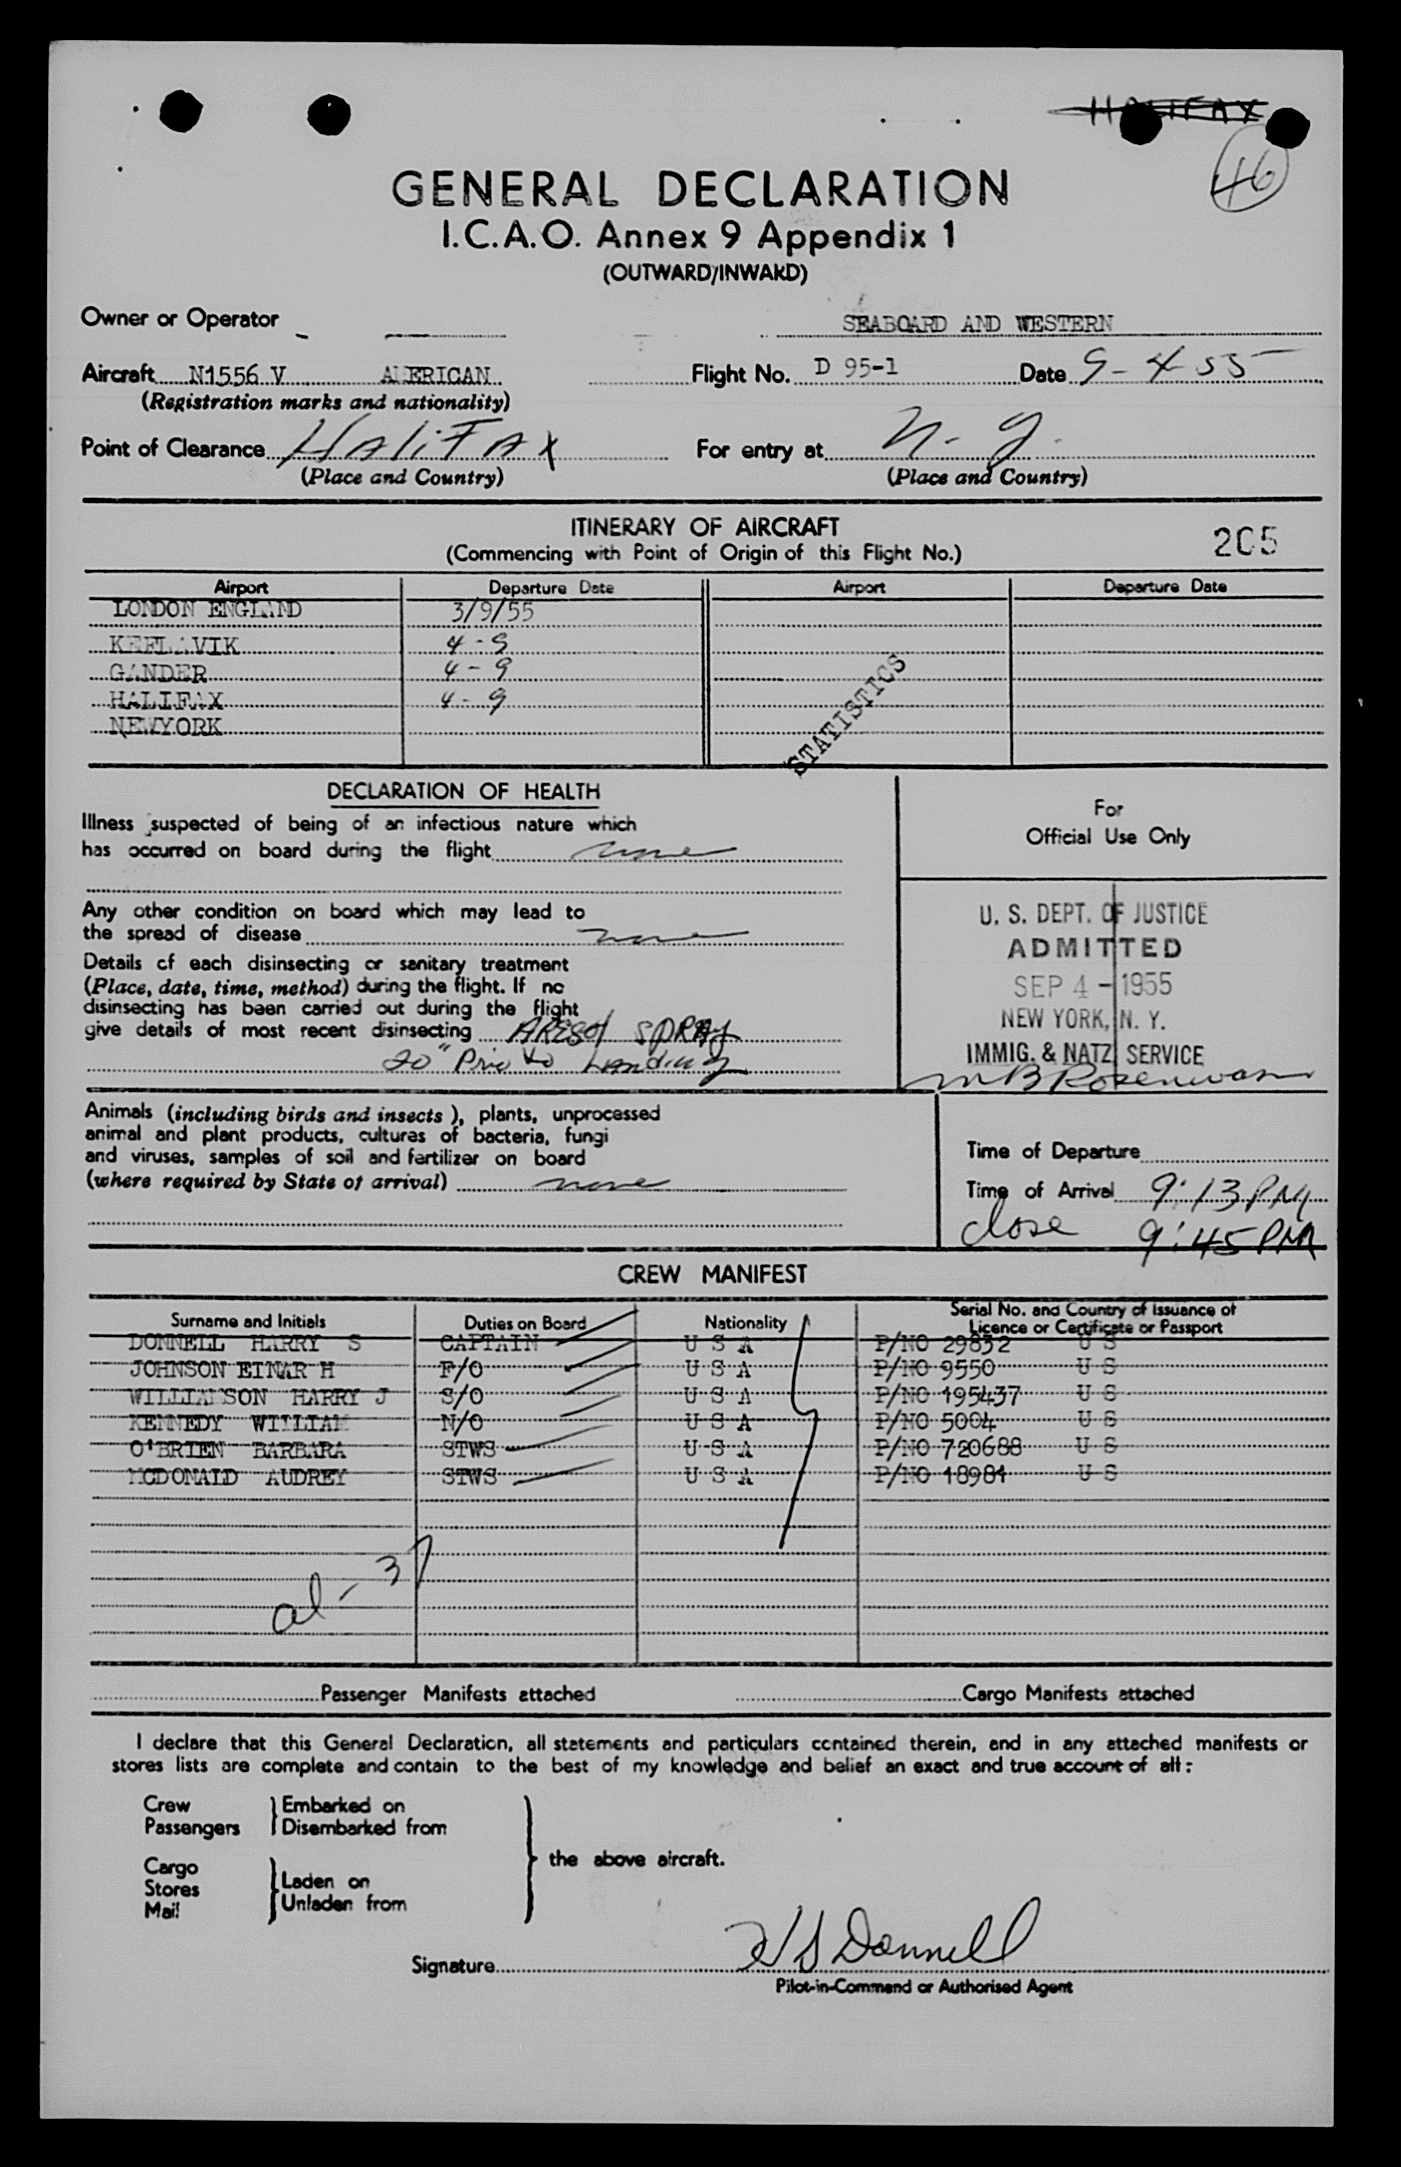 HALIFAX
46
GENERAL DECLARATION
I.C.A.O. Annex 9 Appendix 1
(OUTWARD/INWARD)
Owner or Operator SEABOARD AND WESTERN
Aircraft N1556 V AMERICAN Flight No. D 95-1 Date 9-4-55
(Registration marks and nationality)
Point of Clearance HALIFAX For entry at N.Y.
(Place and Country) (Place and Country)
ITINERARY OF AIRCRAFT
(Commencing with Point of Origin of this Flight No.)
205
Airport Departure Date Airport Departure Date
LONDON ENGLAND 3/9/55
KEFLAVIK 4-9
GANDER 4-9
HALIFAX 4-9
NEWYORK
STATISTICS
DECLARATION OF HEALTH
Illness suspected of being of an infectious nature which
has occurred on board during the flight none
Any other condition on board which may lead to
the spread of disease none
Details of each disinsecting or sanitary treatment
(Place, date, time, method) during the flight. If no
disinsecting has been carried out during the flight
give details of most recent disinsecting ARESOL SPRAY
20" Prio to Landing
For
Official Use Only
U. S. DEPT. OF JUSTICE
ADMITTED
SEP 4 - 1955
NEW YORK, N. Y.
IMMIG. & NATZ SERVICE
Animals (including birds and insects), plants, unprocessed
animal and plant products, cultures of bacteria, fungi
and viruses, samples of soil and fertilizer on board
(where required by State of arrival) none
Time of Departure
Time of Arrival 9:13 PM
close 9:45 PM
CREW MANIFEST
Surname and Initials Duties on Board Nationality Serial No. and Country of Issuance of
Licence or Certificate or Passport
DONNELL HARRY S CAPTAIN U S A P/NO 29832 U S
JOHNSON EINAR H F/O U S A P/NO 9550 U S
WILLIAMSON HARRY J S/O U S A P/NO 195437 U S
KENNEDY WILLIAM N/O U S A P/NO 5004 U S
O'BRIEN BARBARA STWS U S A P/NO 720688 U S
MCDONALD AUDREY STWS U S A P/NO 18981 U S
al-37
Passenger Manifests attached Cargo Manifests attached
I declare that this General Declaration, all statements and particulars contained therein, and in any attached manifests or
stores lists are complete and contain to the best of my knowledge and belief an exact and true account of all:
Crew Embarked on
Passengers Disembarked from
the above aircraft.
Cargo
Stores Laden on
Mail Unladen from
Signature HS Donnell
Pilot-in-Command or Authorised Agent